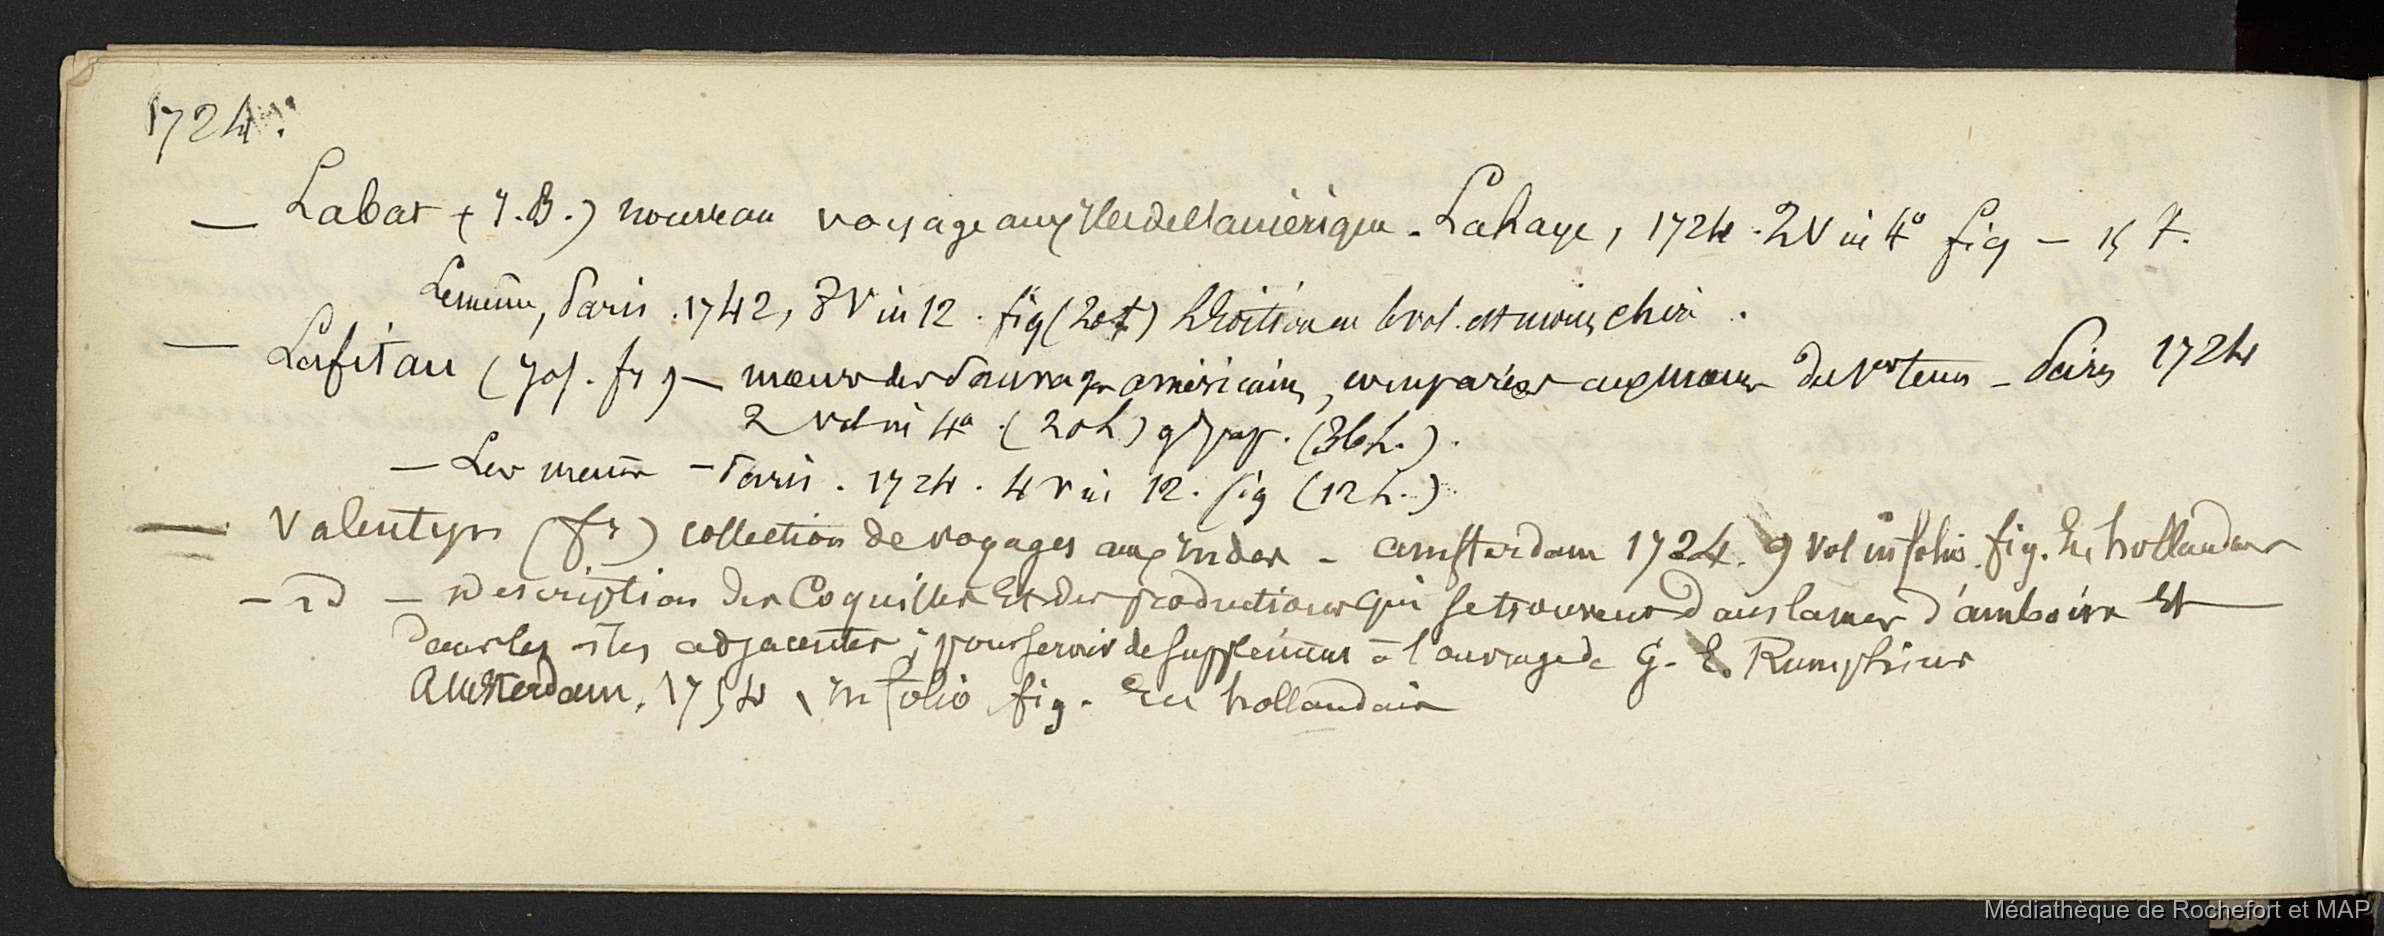 1724.
— Labat (J. B.) nouveau voyage aux Iles de l'amérique. Lahaye, 1724. 2 V in 4° fig — 15 f.
Le meme, Paris. 1742, 8 V in 12. fig (20 f) L'Edition en 6 vol. est moins chère.
— Lafitau (Jos. fr) — moeurs des Sauvages américains, comparées aux moeurs des 1ers tems — Paris 1724
2 vol in 4° (20 L) gd pap. (36 L.).
— Les meme — Paris. 1724. 4 V in 12. fig (12 L.)
— Valentyn (fr) collection de voyages aux Indes — amsterdam 1724. 9 Vol in folio. fig. En hollandais
— id — Description des Coquilles et des productions qui se trouvent dans la mer d'amboine et
dans les iles adjacentes; pour servir de supplement à l'ouvrage de G. E. Rumphius
Amsterdam, 1754, In folio fig. En hollandais
Médiathèque de Rochefort et MAP